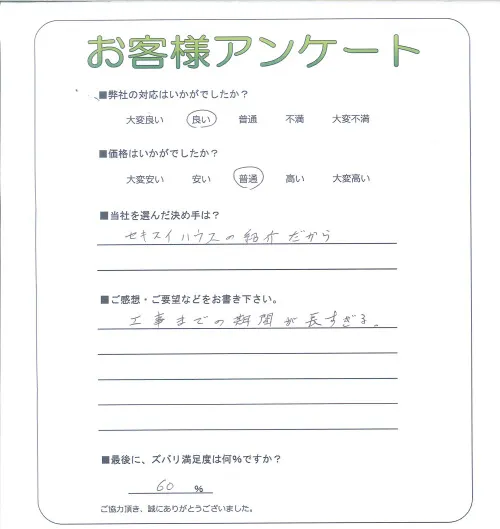 お客様アンケート
■弊社の対応はいかがでしたか？
大変良い 良い 普通 不満 大変不満
■価格はいかがでしたか？
大変安い 安い 普通 高い 大変高い
■当社を選んだ決め手は？
セキスイハウスの紹介だから
■ご感想・ご要望などをお書き下さい。
工事までの期間が長すぎる。
■最後に、ズバリ満足度は何%ですか？
60 %
ご協力頂き、誠にありがとうございました。